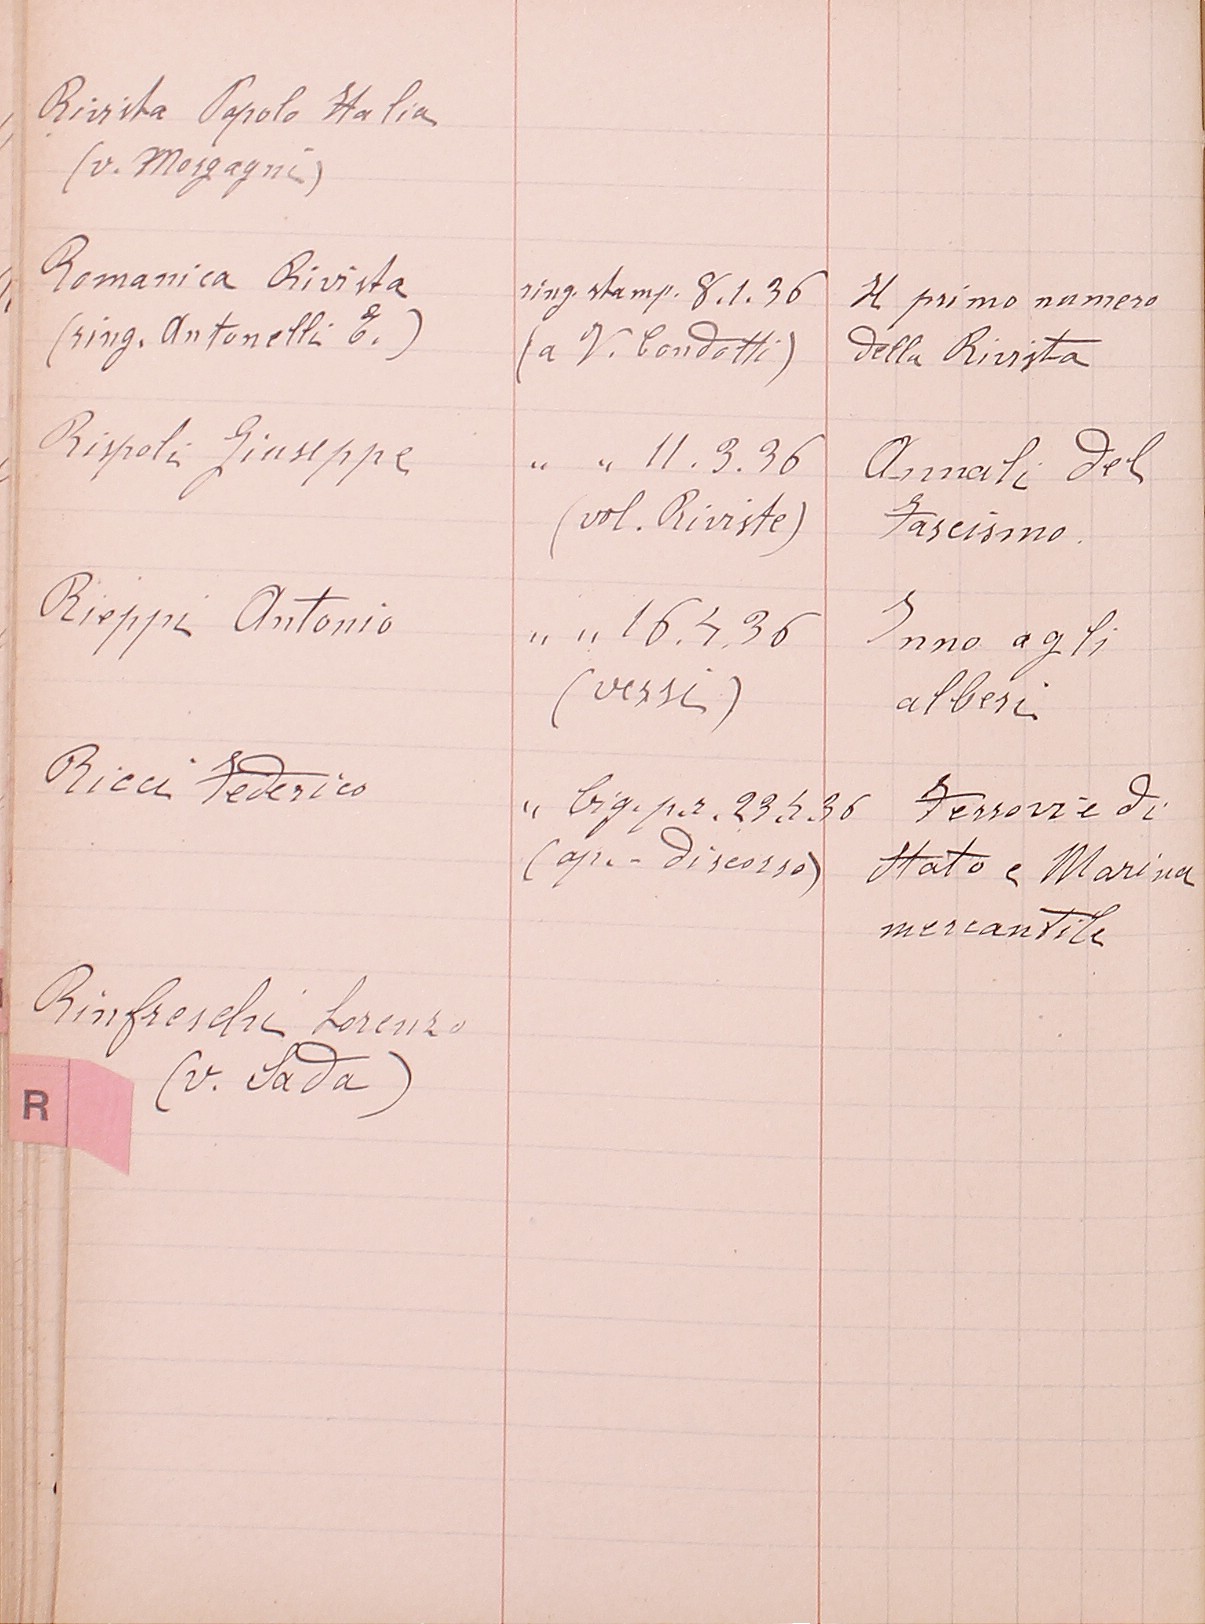 Rivista Popolo Italia
(v. Morgagni)
Romanica Rivista
(ring. Antonelli E.)
ring. stamp. 8.1.36
(a V. Condotti)
Il primo numero
della Rivista
Rispoli Giuseppe
" " 11.3.36
(vol. Riviste)
Annali del
Fascismo.
Rieppi Antonio
" " 16.4.36
(versi)
Inno agli
alberi
Ricci Federico
" big. p.r. 23.4.36
(op. - discorso)
Ferrovie di
Stato e Marina
mercantile
Rinfreschi Lorenzo
(v. Sada)
R